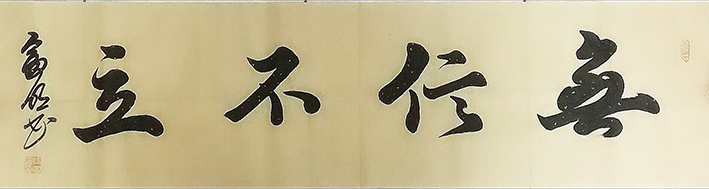 無信不立